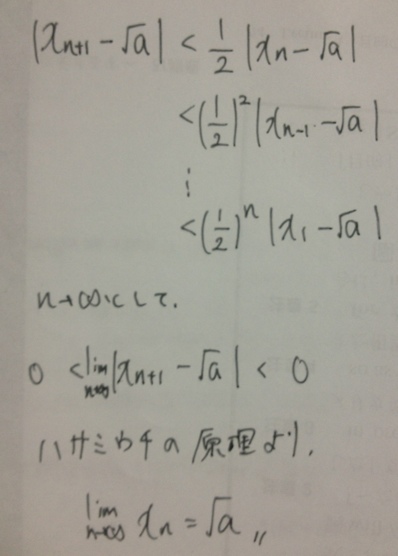 |x_{n+1} - √a| < 1/2 |x_n - √a|
< (1/2)^2 |x_{n-1} - √a|
⋮
< (1/2)^n |x_1 - √a|
n→∞にして.
0 < lim_{n→∞} |x_{n+1} - √a| < 0
ハサミウチの原理より.
lim_{n→∞} x_n = √a 〃